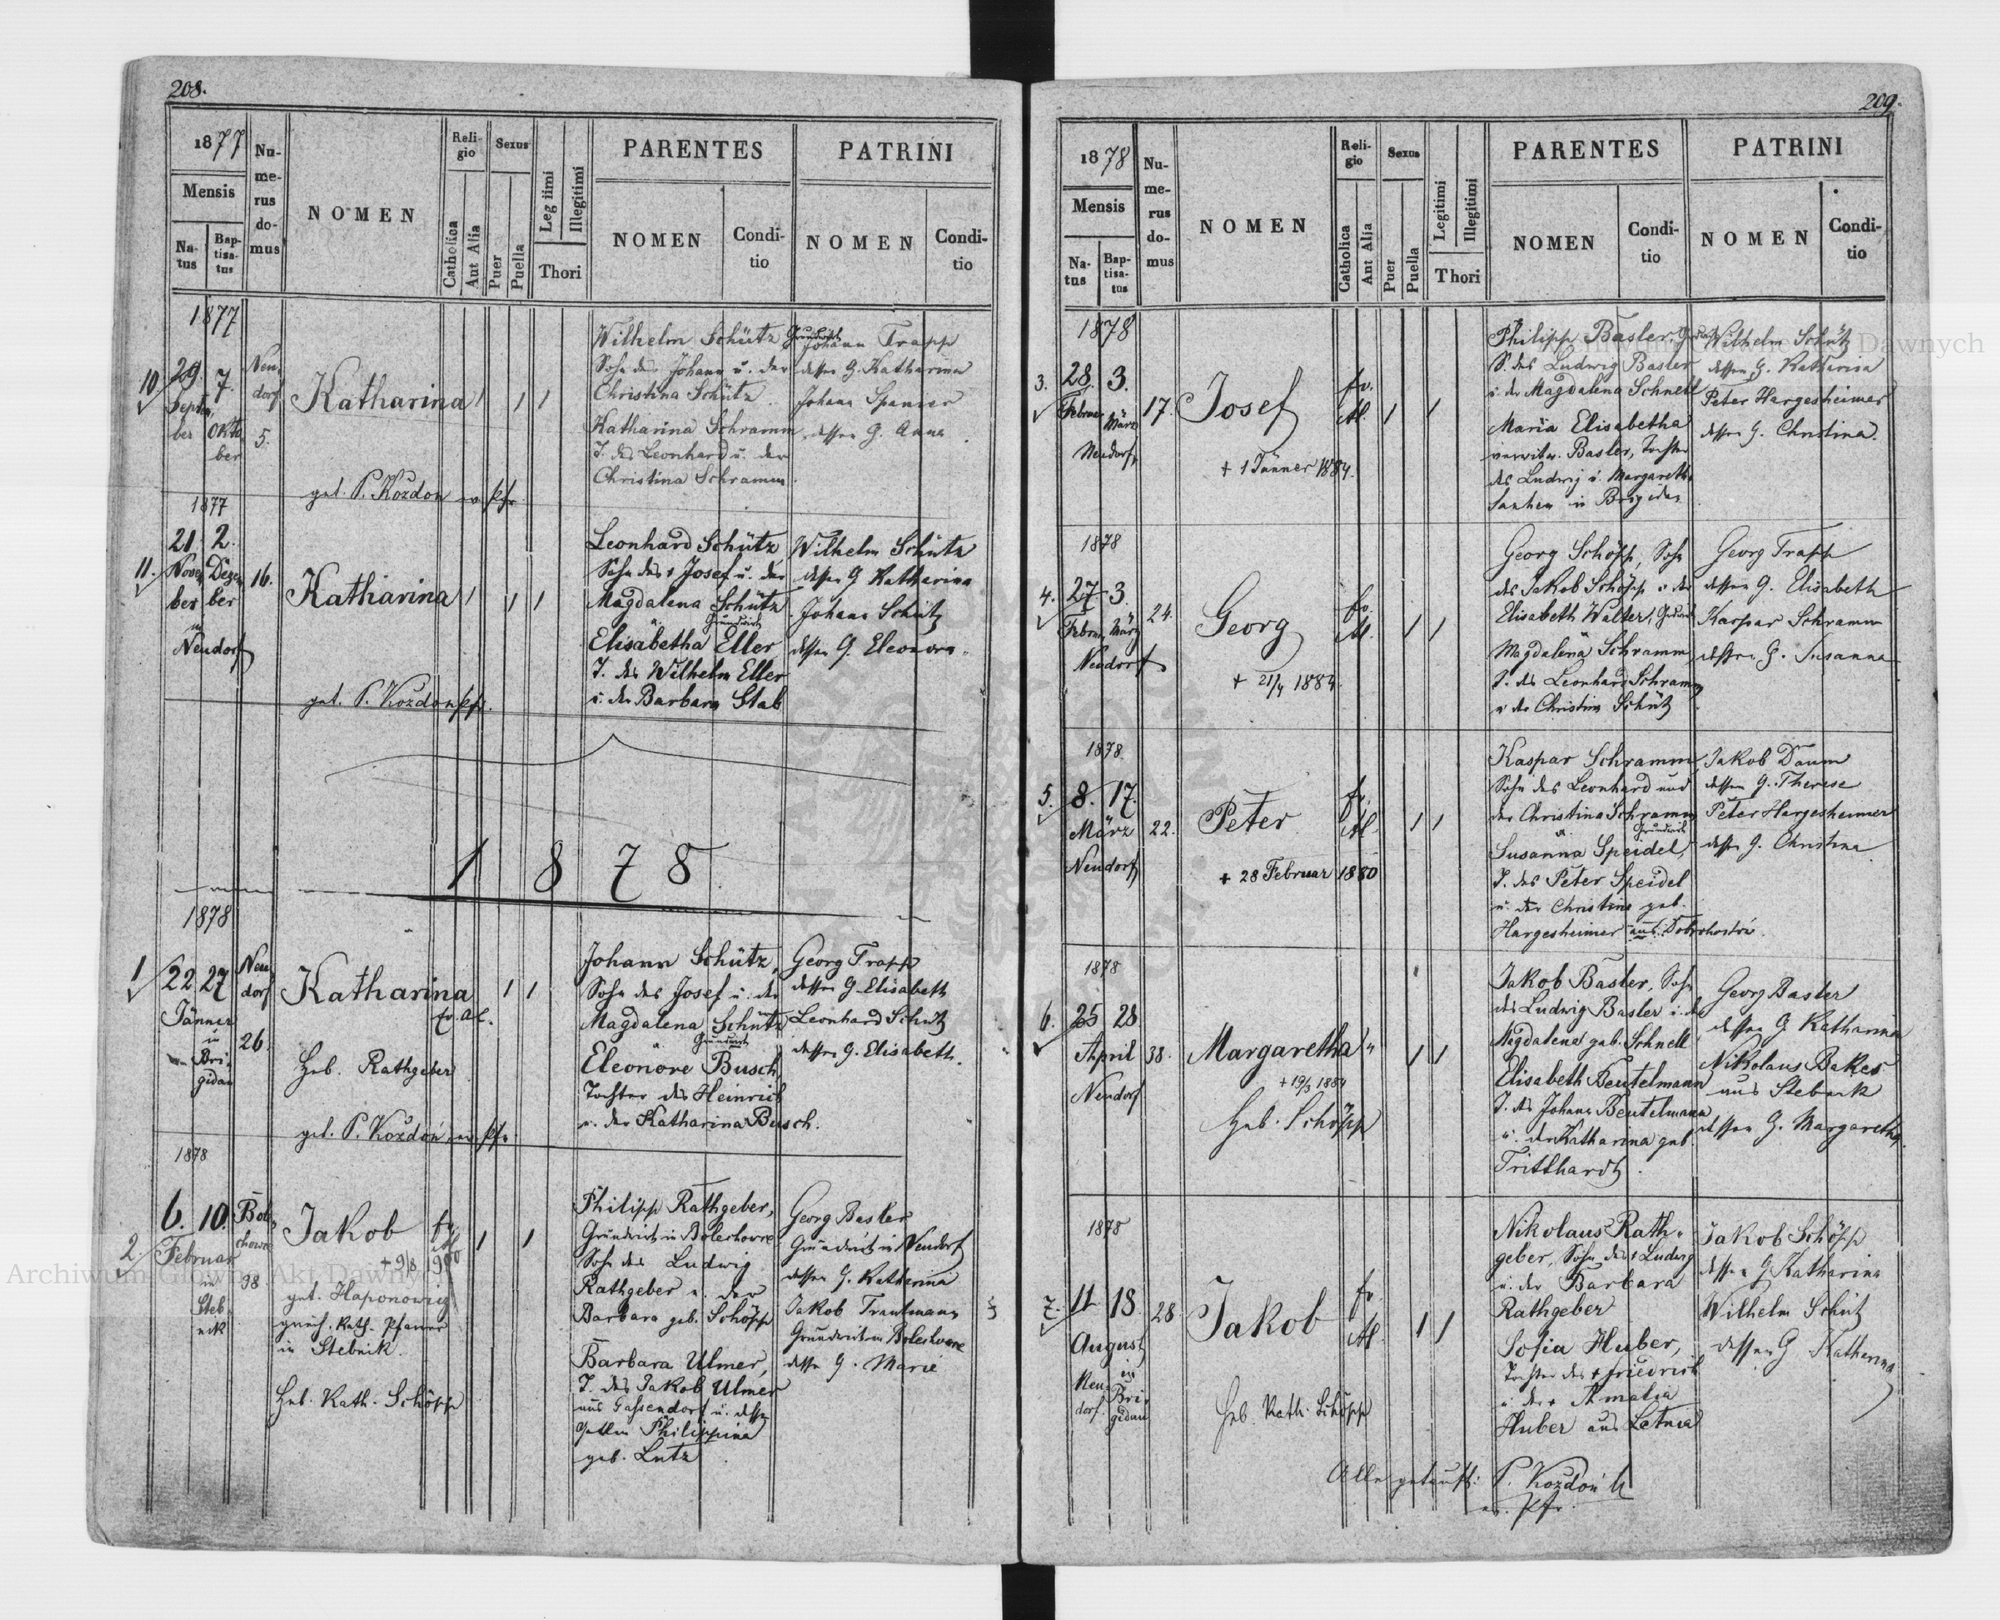 208.
1877
Mensis
Na-
tus
Bap-
tisa-
tus
Nu-
me-
rus
do-
mus
NOMEN
Reli-
gio
Catholica
Aut Alia
Sexus
Puer
Puella
Legitimi
Illegitimi
Thori
PARENTES
NOMEN
Condi-
tio
PATRINI
NOMEN
Condi-
tio
1877
10
29. 7.
Septem
ber Okto
ber
Neu
dorf
5.
Katharina
get. P. Kozdon ev. Pfr.
Wilhelm Schütz Grundwirth
Sohn des Johann u. der
Christina Schütz
Katharina Schramm
T. des Leonhard u. der
Christina Schramm.
Johann Trapp
dessen G. Katharina
Johann Spanier
dessen G. Anna
1877
11.
21. 2.
Novem Dezem
ber ber
in
Neudorf
16.
Katharina
get. P. Kozdon Pfr.
Leonhard Schütz
Sohn des + Josef u. der
Magdalena Schütz
u. Grundwirth
Elisabetha Eller
T. des Wilhelm Eller
u. der Barbara Stab
Wilhelm Schütz
dessen G Katharina
Johann Schütz
dessen G. Eleonora.
1878
1878
1
22 27
Jänner
in
Bri
gidau
Neu
dorf
26.
Katharina
Ev. A. C.
Heb. Rathgeber
get. P. Kozdoń ev. Pfr.
Johann Schütz,
Sohn des Josef u. der
Magdalena Schütz
u. Grundwirth
Eleonore Busch,
Tochter des Heinrich
u. der Katharina Busch.
Georg Trapp
dessen G. Elisabeth
Leonhard Schütz
dessen G. Elisabeth.
1878
2
6. 10.
Februar
in
Steb
nik
Bole
chowce
98
Jakob
+ 9/3 900
get. Haponowicz
griech. kath. Pfarrer
in Stebnik.
Heb. Kath. Schöpp
Philipp Rathgeber,
Grundwirth in Bolechowce
Sohn des Ludwig
Rathgeber u. der
Barbara geb. Schöpp
Barbara Ulmer,
T. des Jakob Ulmer
aus Gassendorf u. dessen
Gattin Philippina
geb. Lutz
Georg Basler
Grundwirth in Neudorf
dessen G. Katharina
Jakob Trautmann
Grundwirth in Bolechowce
dessen G. Marie
209.
1878
Mensis
Na-
tus
Bap-
tisa-
tus
Nu-
me-
rus
do-
mus
NOMEN
Reli-
gio
Catholica
Aut Alia
Sexus
Puer
Puella
Legitimi
Illegitimi
Thori
PARENTES
NOMEN
Condi-
tio
PATRINI
NOMEN
Condi-
tio
1878
3.
28. 3.
Februar März
Neudorf
17.
Josef
+ 1 Jänner 1884.
Philipp Basler,
S. des Ludwig Basler
u. der Magdalena Schnell
Maria Elisabetha
verwitw. Basler, Tochter
des Ludwig u. Margaretha
in Brigidau
Wilhelm Schütz
dessen G. Katharina
Peter Hargesheimer
dessen G. Christina.
1878
4.
27. 3
Februar März
Neudorf
24.
Georg
+ 21/4 1884.
Georg Schöpp, Sohn
des Jakob Schöpp u. der
Elisabeth Walter, Grundwirth
Magdalena Schramm
T. des Leonhard Schramm
u. der Christina Schütz
Georg Trapp
dessen G. Elisabeth
Kaspar Schramm
dessen G. Susanna
1878.
5.
8. 17.
März
Neudorf
22.
Peter
+ 28 Februar 1880
Kaspar Schramm,
Sohn des Leonhard und
der Christina Schramm
u. Grundwirth
Susanna Speidel,
T. des Peter Speidel
u. der Christine geb.
Hargesheimer aus Dobrohostów.
Jakob Daum
dessen G. Therese
Peter Hargesheimer
dessen G. Christina
1878
6.
25 28
April
Neudorf
38.
Margaretha
+ 19/3 1884
Heb. Schöpp
Jakob Basler, Sohn
des Ludwig Basler u. der
Magdalena geb. Schnell
Elisabeth Beutelmann
T. des Johann Beutelmann
u. der Katharina geb.
Tritthardt.
Georg Basler
dessen G Katharina
Nikolaus Baker
aus Stebnik
dessen G. Margaretha.
1878
7.
11 18.
August
Neu in
dorf. Bri
gidau
28
Jakob
Heb. Kath. Schöpp
Nikolaus Rath-
geber, Sohn des + Ludwig
u. der Barbara
Rathgeber
Sofia Huber,
Tochter des + Friedrich
u. der + Amalia
Huber aus Letnia
Jakob Schöpp
dessen G Katharina
Wilhelm Schütz
dessen G Katharina
Alle getauft: P. Kozdoń
ev. Pfr.
Archiwum Główne Akt Dawnych